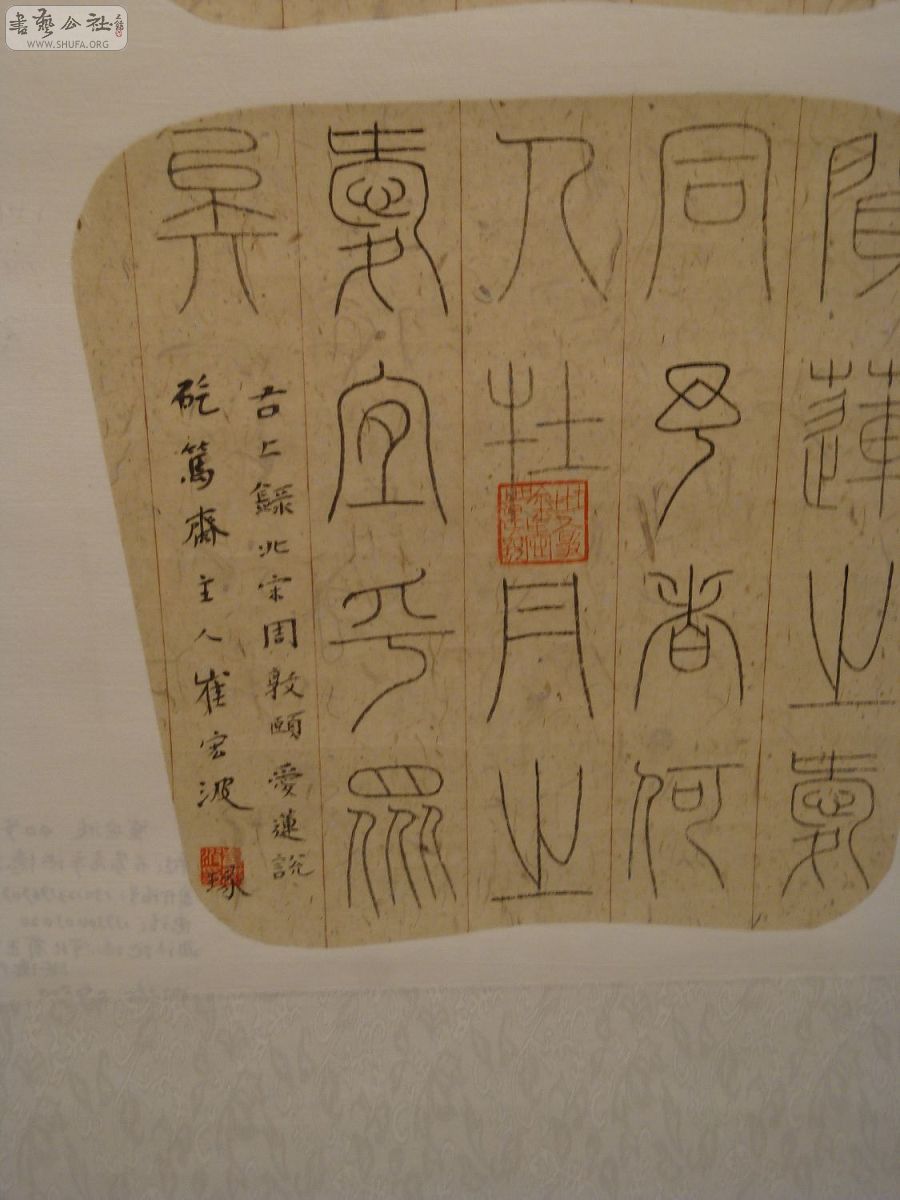 書藝公社
WWW.SHUFA.ORG
聞蓮之愛
同予者何
人牡丹之
愛宜乎眾
矣
右上錄北宋周敦頤愛蓮說
齋主人崔宏波